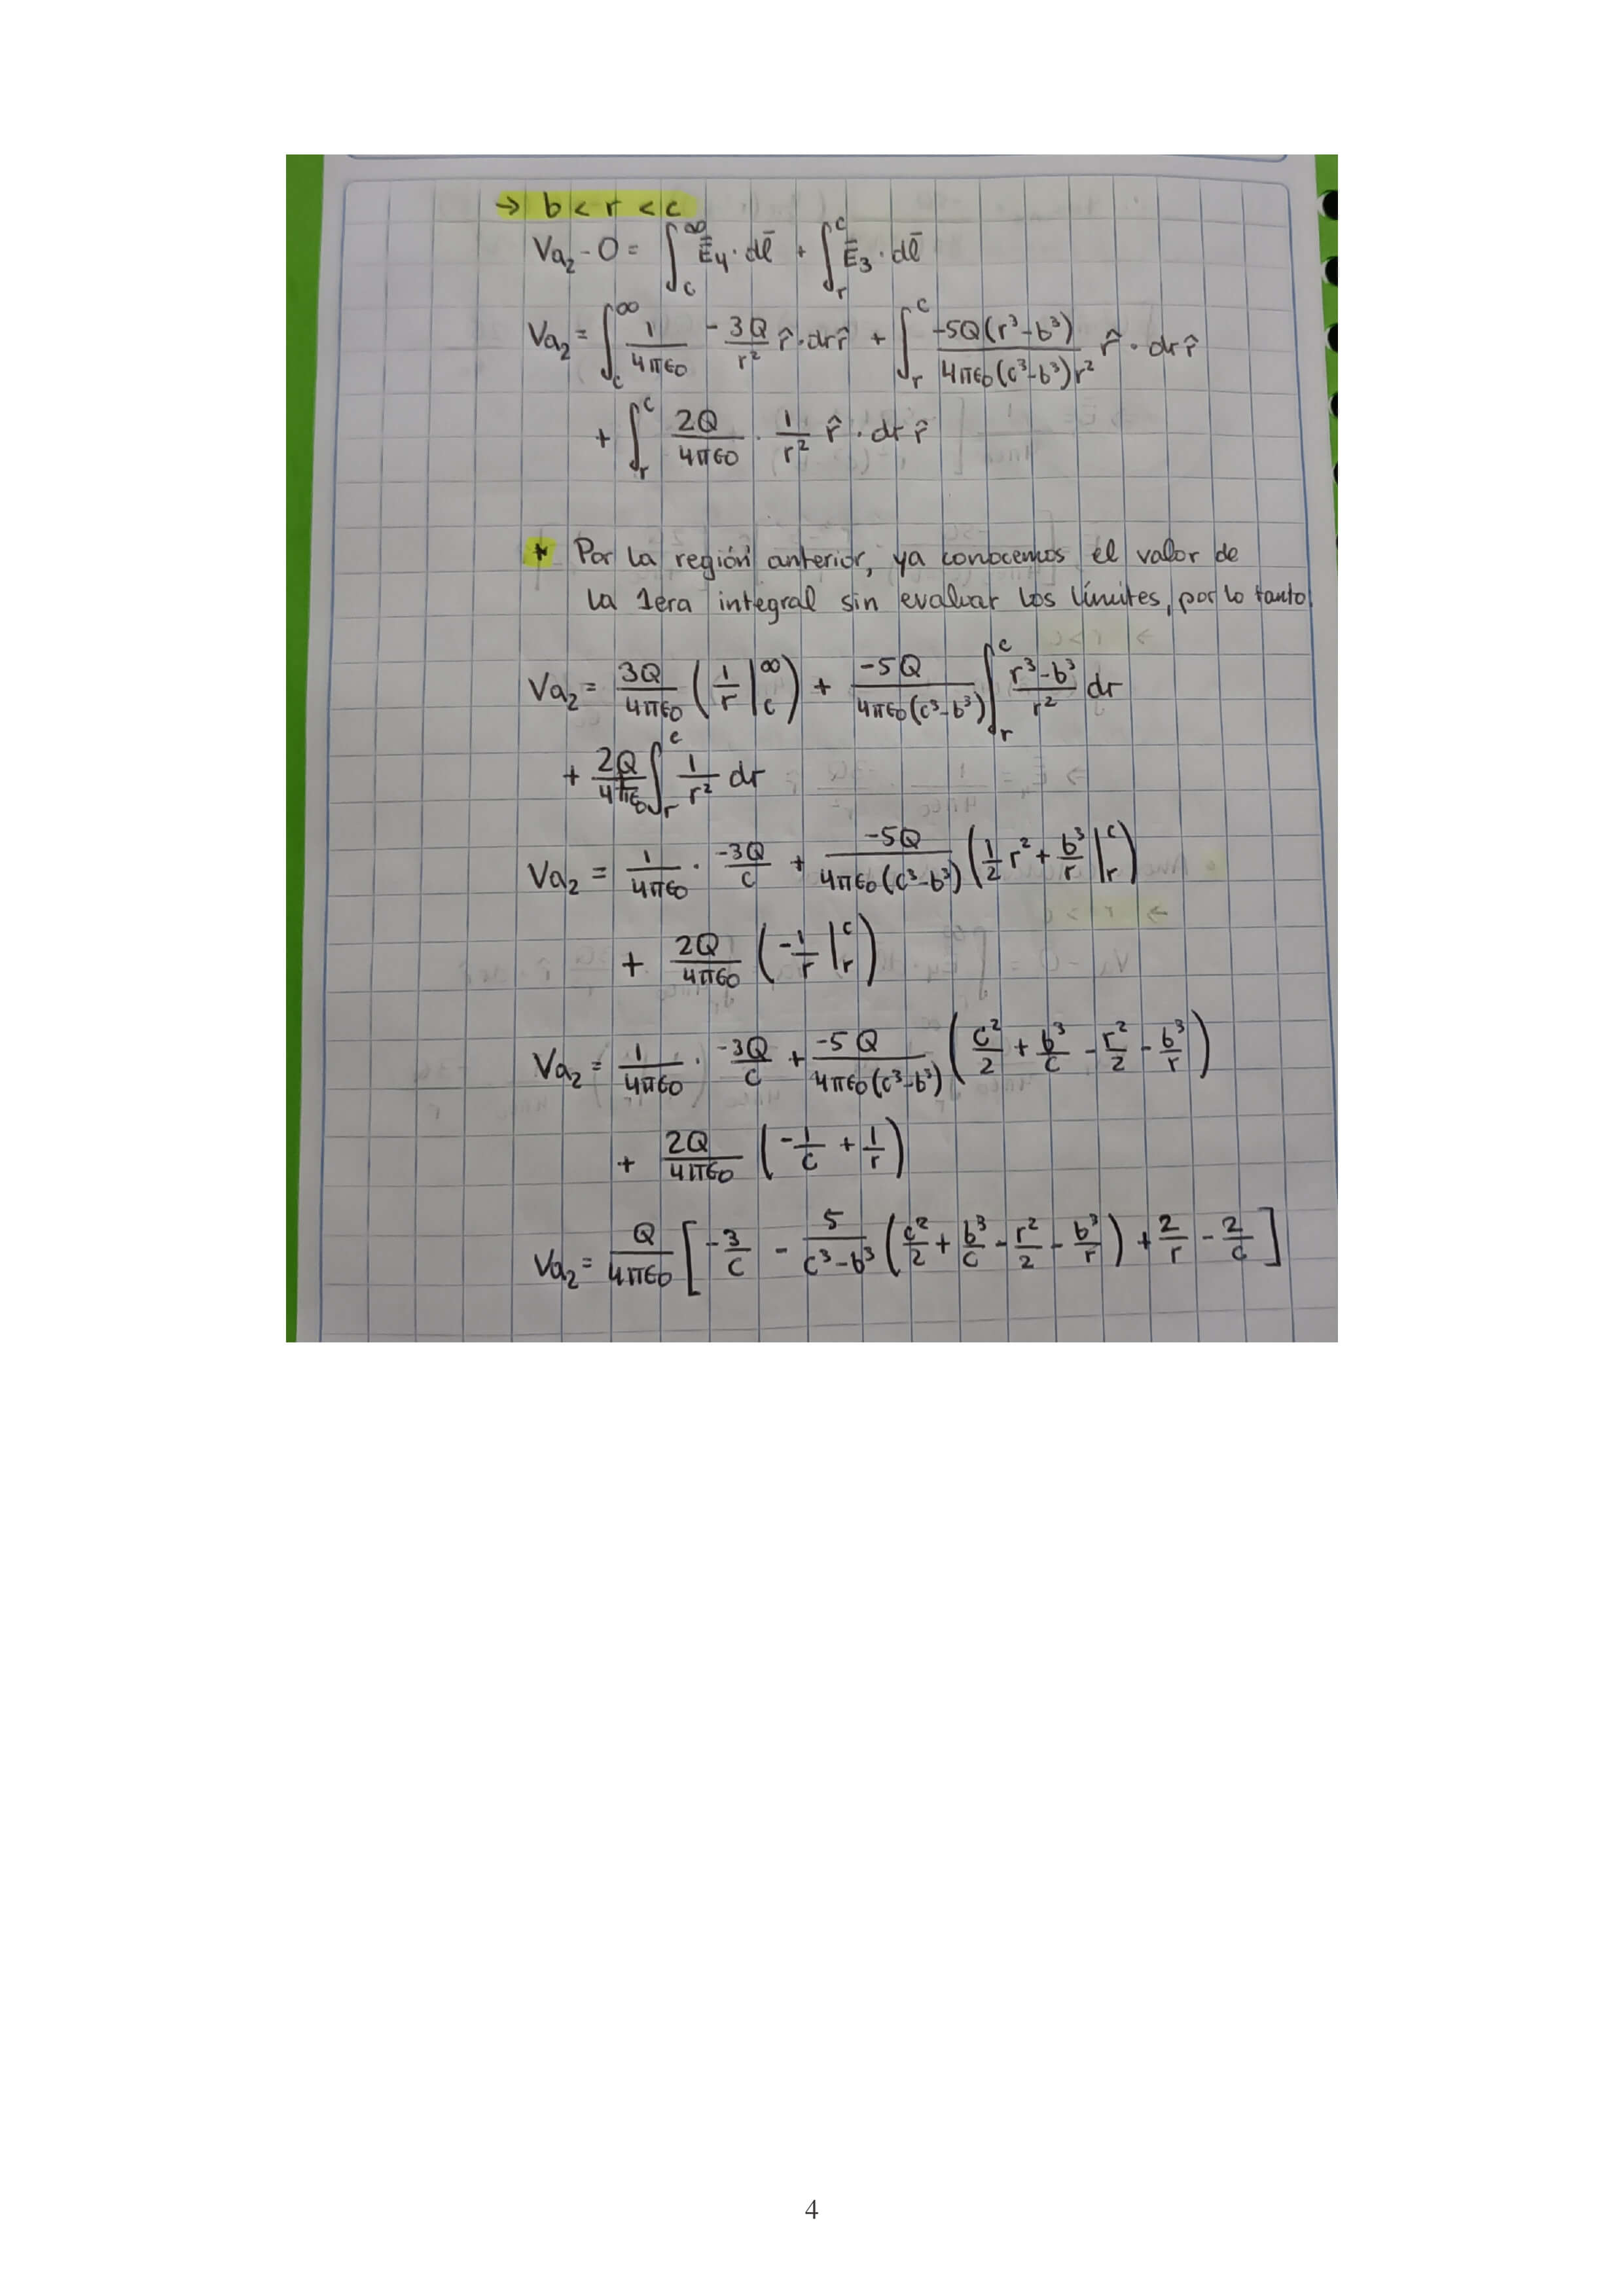 → b < r < c
Va₂ - 0 = ∫_c^∞ Ē₄ · dl̄ + ∫_r^c Ē₃ · dl̄
Va₂ = ∫_c^∞ 1/4πє₀ -3Q/r² r̂ · dr r̂ + ∫_r^c -5Q(r³-b³)/4πє₀(c³-b³)r² r̂ · dr r̂
+ ∫_r^c 2Q/4πє₀ · 1/r² r̂ · dr r̂
* Por la región anterior, ya conocemos el valor de
la 1era integral sin evaluar los límites, por lo tanto
Va₂ = 3Q/4πє₀ (1/r |_c^∞) + -5Q/4πє₀(c³-b³) ∫_r^c r³-b³/r² dr
+ 2Q/4πє₀ ∫_r^c 1/r² dr
Va₂ = 1/4πє₀ · -3Q/c + -5Q/4πє₀(c³-b³) (1/2 r² + b³/r |_r^c)
+ 2Q/4πє₀ (-1/r |_r^c)
Va₂ = 1/4πє₀ · -3Q/c + -5Q/4πє₀(c³-b³) (c²/2 + b³/c - r²/2 - b³/r)
+ 2Q/4πє₀ (-1/c + 1/r)
Va₂ = Q/4πє₀ [-3/c - 5/c³-b³ (c²/2 + b³/c - r²/2 - b³/r) + 2/r - 2/c]
4